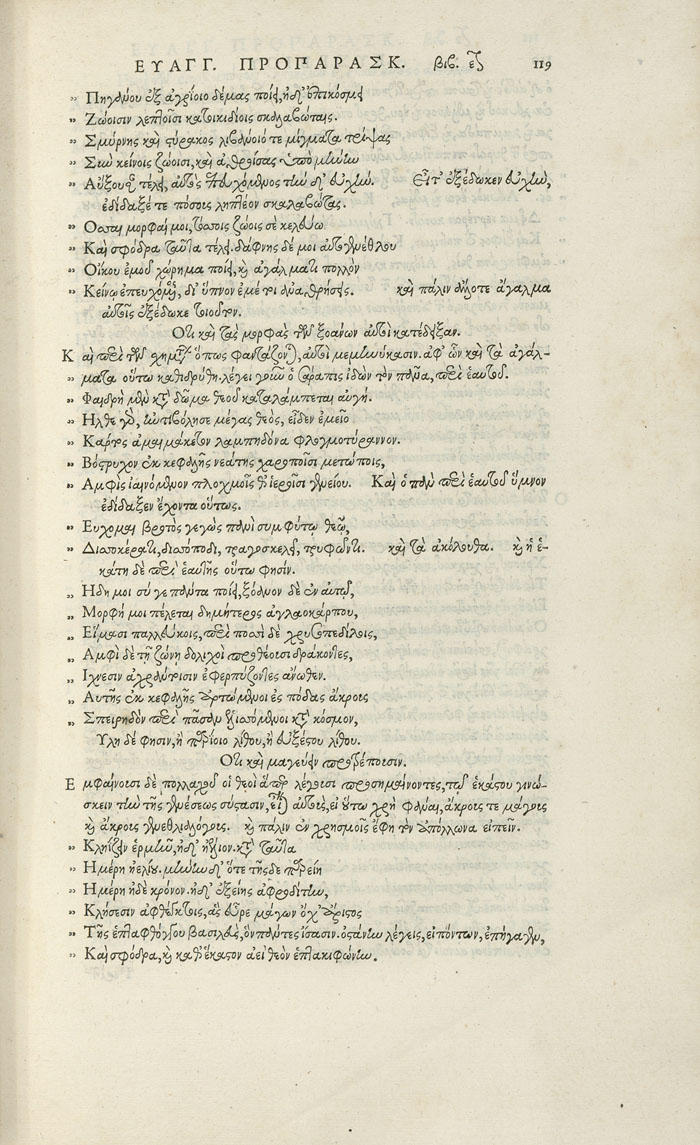 ΕΥΑΓΓ. ΠΡΟΠΑΡΑΣΚ. βιβ. ε 119
” Πηγάνου ἐξ ἀγρίοιο δέμας ποίει, ἠδ' ἐπικόσμει
” Ζώοισιν λεπτοῖσι κατοικιδίοις σκαλαβώταις.
” Σμύρνης καὶ στύρακος λιβάνοιό τε μίγματα τρίψας
” Σὺν κείνοις ζώοισι, καὶ αἰθρίσας ὑπὸ μήνην
” Αὔξουσαν τέλει, αὐτὸς ἐπευχόμενος τήνδ' εὐχήν. Εἶτ' ἐξέδωκεν εὐχὴν,
ἐδίδαξέ τε πόσοις ληπτέον σκαλαβώτας.
” Οσσαι μορφαί μοι, τόσσοις ζώοις σε κελεύω
” Καὶ σφόδρα ταῦτα τέλει. δάφνης δέ μοι αὐτογενέθλου
” Οἴκου ἐμοῦ χώρημα ποίει, καὶ ἀγάλματι πολλὸν
” Κείνῳ ἐπευχόμενος, δι' ὕπνον ἐμέ γε ἀναθρήσεις. καὶ πάλιν ἄλλοτε ἄγαλμα
αὐτῆς ἐξέδωκε τοιοῦτον.
Οτι καὶ τὰς μορφὰς τῶν ξοάνων αὐτοὶ κατέδειξαν.
Καὶ περὶ τῶν σχημάτων ὅπως φαντάζονται, αὐτοὶ μεμηνύκασιν. ἀφ' ὧν καὶ τὰ ἀγάλ-
” ματα οὕτω καθιδρύθη. λέγει γοῦν ὁ Σάραπις ἰδὼν τὸν πᾶνα, περὶ ἑαυτοῦ.
” Φαιδρὴ μὲν κατὰ δῶμα θεοῦ καταλάμπεται αὐγή.
” Ηλθε γὰρ, ἠντιβόλησε μέγας θεὸς, εἶδεν ἐμεῖο
” Κάρτος ἀμαιμάκετον λαμπηδόνα φλογμοτύραννον.
” Βόστρυχον ἐκ κεφαλῆς νεάτης χαροποῖσι μετώποις,
” Αμφὶς ἰαινόμενον πλοχμοῖς θ' ἱεροῖσι γενείου. Καὶ ὁ πᾶν περὶ ἑαυτοῦ ὕμνον
ἐδίδαξεν ἔχοντα οὕτως.
” Εὔχομαι βροτὸς γεγὼς πανὶ συμφύτῳ θεῷ,
” Δισσοκέρατι, δισσόποδι, τραγοσκελεῖ, τρυφῶντι. καὶ τὰ ἀκόλουθα. καὶ ἡ ἑ-
κάτη δὲ περὶ ἑαυτῆς οὕτω φησίν.
„ Ηδη μοι σύ γε πάντα ποίει, ξόανον δὲ ἐν αὐτοῖς,
„ Μορφή μοι πέλεται δημήτερος ἀγλαοκάρπου,
„ Εἵμασι παλλεύκοις, περὶ ποσσὶ δὲ χρυσοπεδίλοις,
„ Αμφὶ δὲ τῇ ζώνῃ δολιχοὶ προθέουσι δράκοντες,
„ Ιχνεσιν ἀχράντοισιν ἐφερπύζοντες ἄνωθεν.
„ Αὐτῆς ἐκ κεφαλῆς ἀρτώμενοι ἐς πόδας ἄκρους
„ Σπειρηδὸν περὶ πᾶσαν ἑλισσόμενοι κατὰ κόσμον,
Υλη δέ φησιν, ἢ παρίοιο λίθου, ἢ εὐξέστου λίθου.
Οτι καὶ μαγεύειν προὔτρεπουσιν.
Εμφαίνουσι δὲ πολλαχοῦ οἱ θεοὶ ἅπερ λέγουσι προσημαίνοντες, τῷ ἑκάστου γινώ-
σκειν τὴν τῆς γενέσεως σύστασιν, εἶναι αὐτοὺς, εἰ οὕτω χρὴ φάναι, ἄκρους τε μάγους
καὶ ἄκρους γενεθλιαλόγους. καὶ πάλιν ἐν χρησμοῖς ἔφη τὸν ἀπόλλωνα εἰπεῖν.
” Κληίζειν ἑρμῆν, ἠδ' ἠέλιον. κατὰ ταῦτα
” Ημέρῃ ἠελίου. μήνην δ' ὅτε τῆσδε παρείη
” Ημέρη ἠδὲ κρόνον. ἠδ' ἑξείης ἀφροδίτην,
” Κλήσεσιν ἀφθέγκτοις, ἃς εὗρε μάγων ὄχ' ἄριστος
” Τῆς ἑπταφθόγγου βασιλεὺς, ὃν πάντες ἴσασιν. ὀστάνην λέγεις, εἰπόντων, ἐπήγαγεν,
” Καὶ σφόδρα, καὶ καθ' ἕκαστον ἀεὶ θεὸν ἑπτακιφώνην.